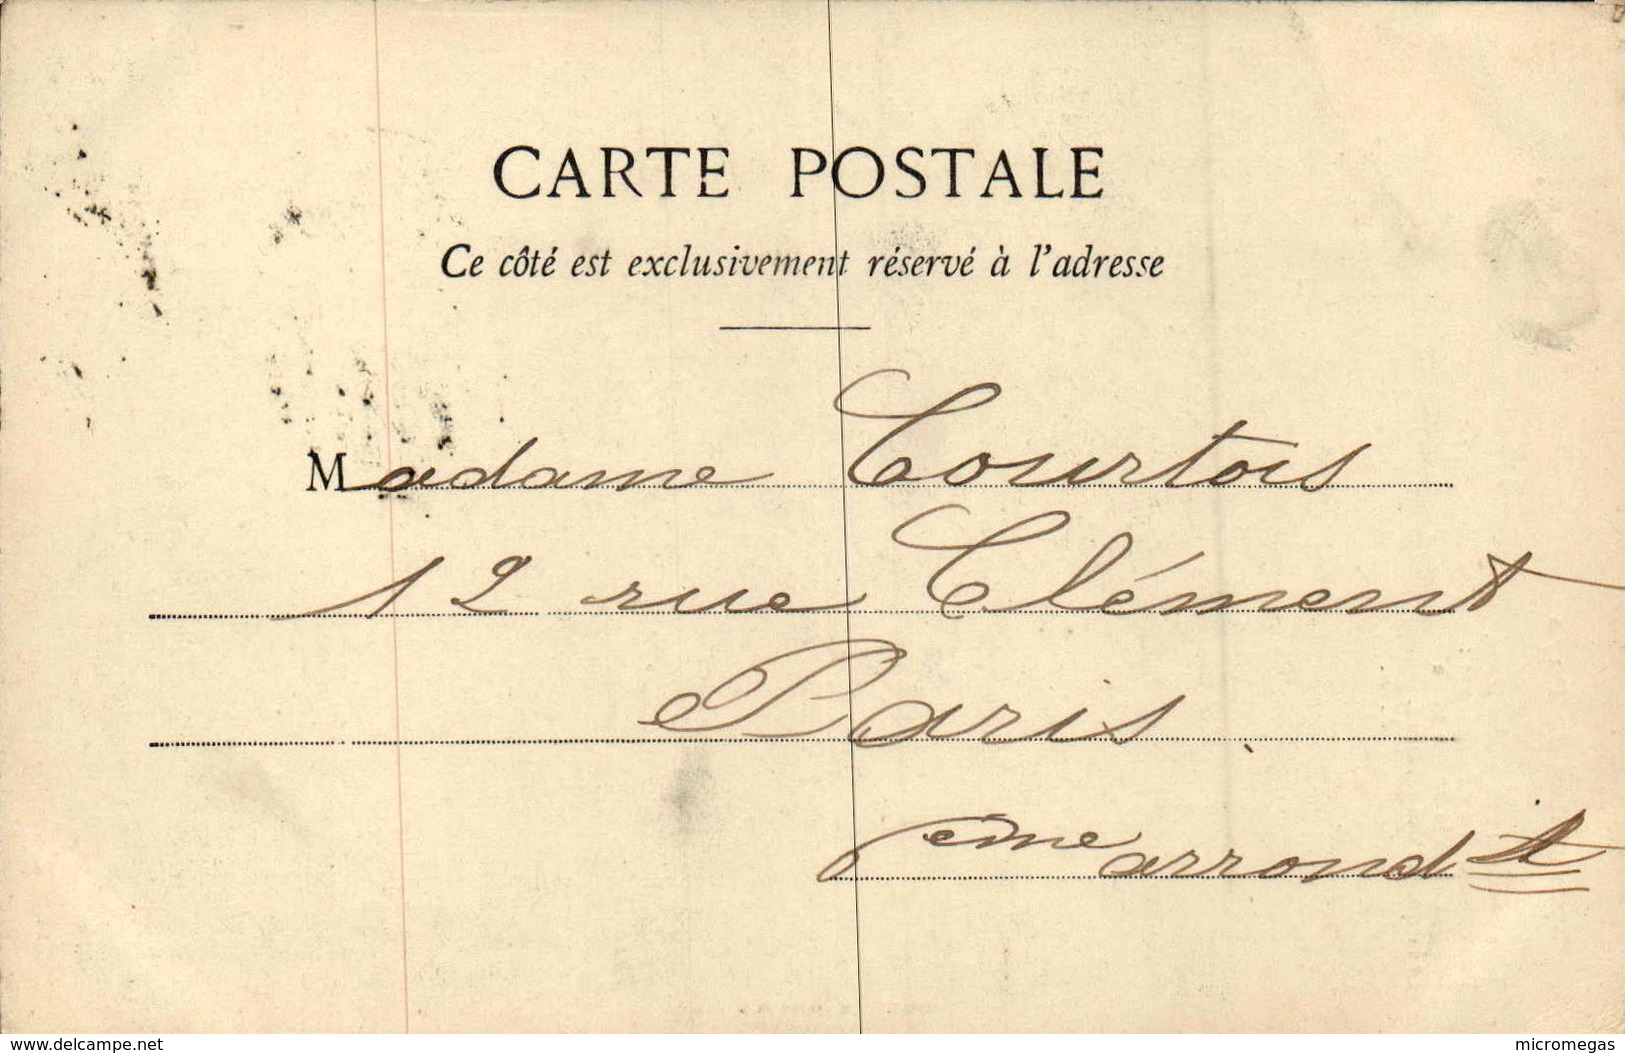 CARTE POSTALE
Ce côté est exclusivement réservé à l'adresse
Madame Courtois
12 rue Clément
Paris
ème arrondt
www.delcampe.net
micromegas